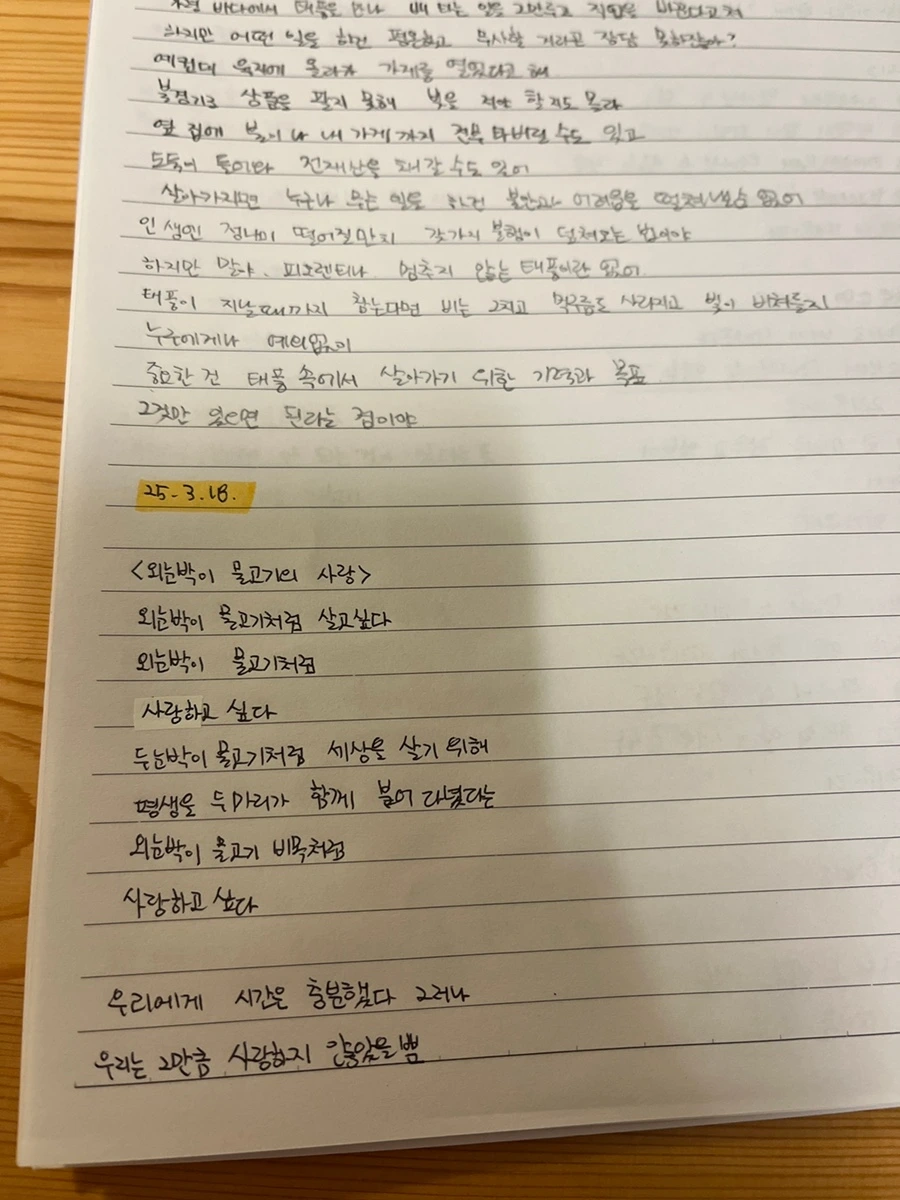 바다에서 태풍을 만나 배 타는 일을 그만두고 직업을 바꾼다고 쳐
하지만 어떤 일을 하건 평온하고 무사할 거라곤 장담 못하잖아?
예컨대 육지에 올라가 가게를 열었다고 해
불경기로 상품을 팔지 못해 빚을 져야 할지도 몰라
옆 집에 불이 나 내 가게까지 전부 타버릴 수도 있고
도둑이 들이와 전재산을 훼갈 수도 있어
살아가자면 누구나 무슨 일을 하건 불안과 어려움을 떨쳐낼 순 없어
인생엔 정나미 떨어질만치 갖가지 불행이 덮쳐오는 법이야
하지만 말야, 피오렌티나 멈추지 않는 태풍이란 없어
태풍이 지날때까지 참는다면 비는 그치고 먹구름도 사라지고 빛이 비쳐들지
누구에게나 예외없이
중요한 건 태풍 속에서 살아가기 위한 기력과 목표
그것만 있으면 된다는 점이야
25-3.18.
<외눈박이 물고기의 사랑>
외눈박이 물고기처럼 살고싶다
외눈박이 물고기처럼
사랑하고 싶다
두눈박이 물고기처럼 세상을 살기 위해
평생을 두마리가 함께 붙어 다녔다는
외눈박이 물고기 비목처럼
사랑하고 싶다
우리에게 시간은 충분했다 그러나
우리는 그만큼 사랑하지 않았을 뿐